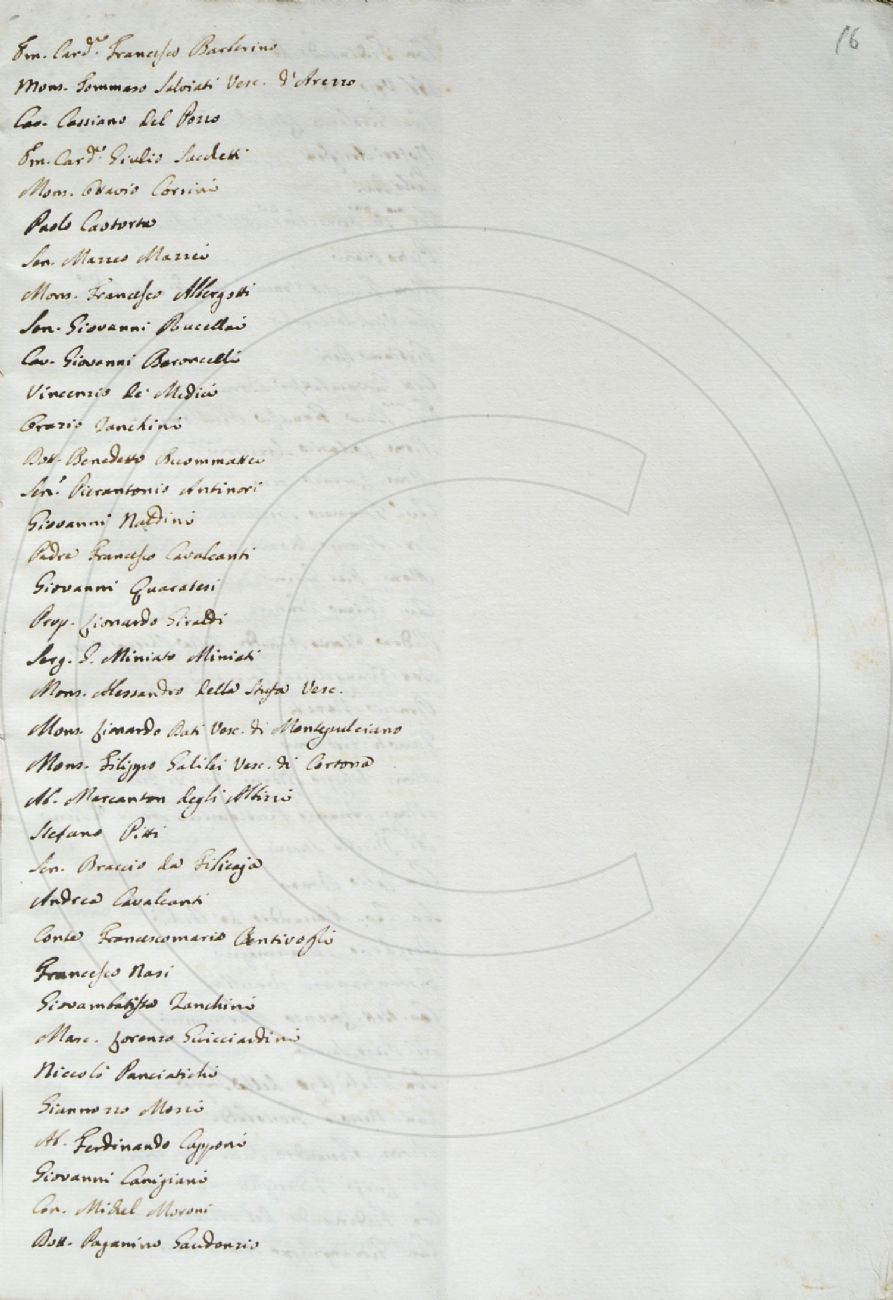 16
Em. Card.le Francesco Barberino
Mons. Tommaso Salviati Vesc. d'Arezzo
Cav. Cassiano del Pozzo
Em. Card.le Giulio Sacchetti
Mons. Ottavio Corsini
Paolo
Sen. Matteo
Mons. Francesco Albergotti
Sen. Giovanni Rucellai
Cav. Giovanni Baroncelli
Vincenzio de' Medici
Orazio Zanchini
Dott. Benedetto Buommattei
Sen.r Pierantonio Antinori
Giovanni Nardini
Padre Francesco Cavalcanti
Giovanni Quaratesi
Prop. Lionardo Giraldi
Serg. Miniato Miniati
Mons. Alessandro della Stufa Vesc.
Mons. Lionardo Dati Vesc. di Montepulciano
Mons. Filippo Galilei Vesc. di Cortona
Ab. Marcanton degli Albizi
Stefano Pitti
Sen. Braccio da Filicaja
Andrea Cavalcanti
Conte Francescomaria Bentivogli
Francesco Nasi
Giovambatista Zanchini
Marc. Lorenzo Guicciardini
Niccolò Panciatichi
Giannozzo
Ab. Ferdinando Capponi
Giovanni Canigiani
Can. Michel Moroni
Dott. Paganino Gaudenzio